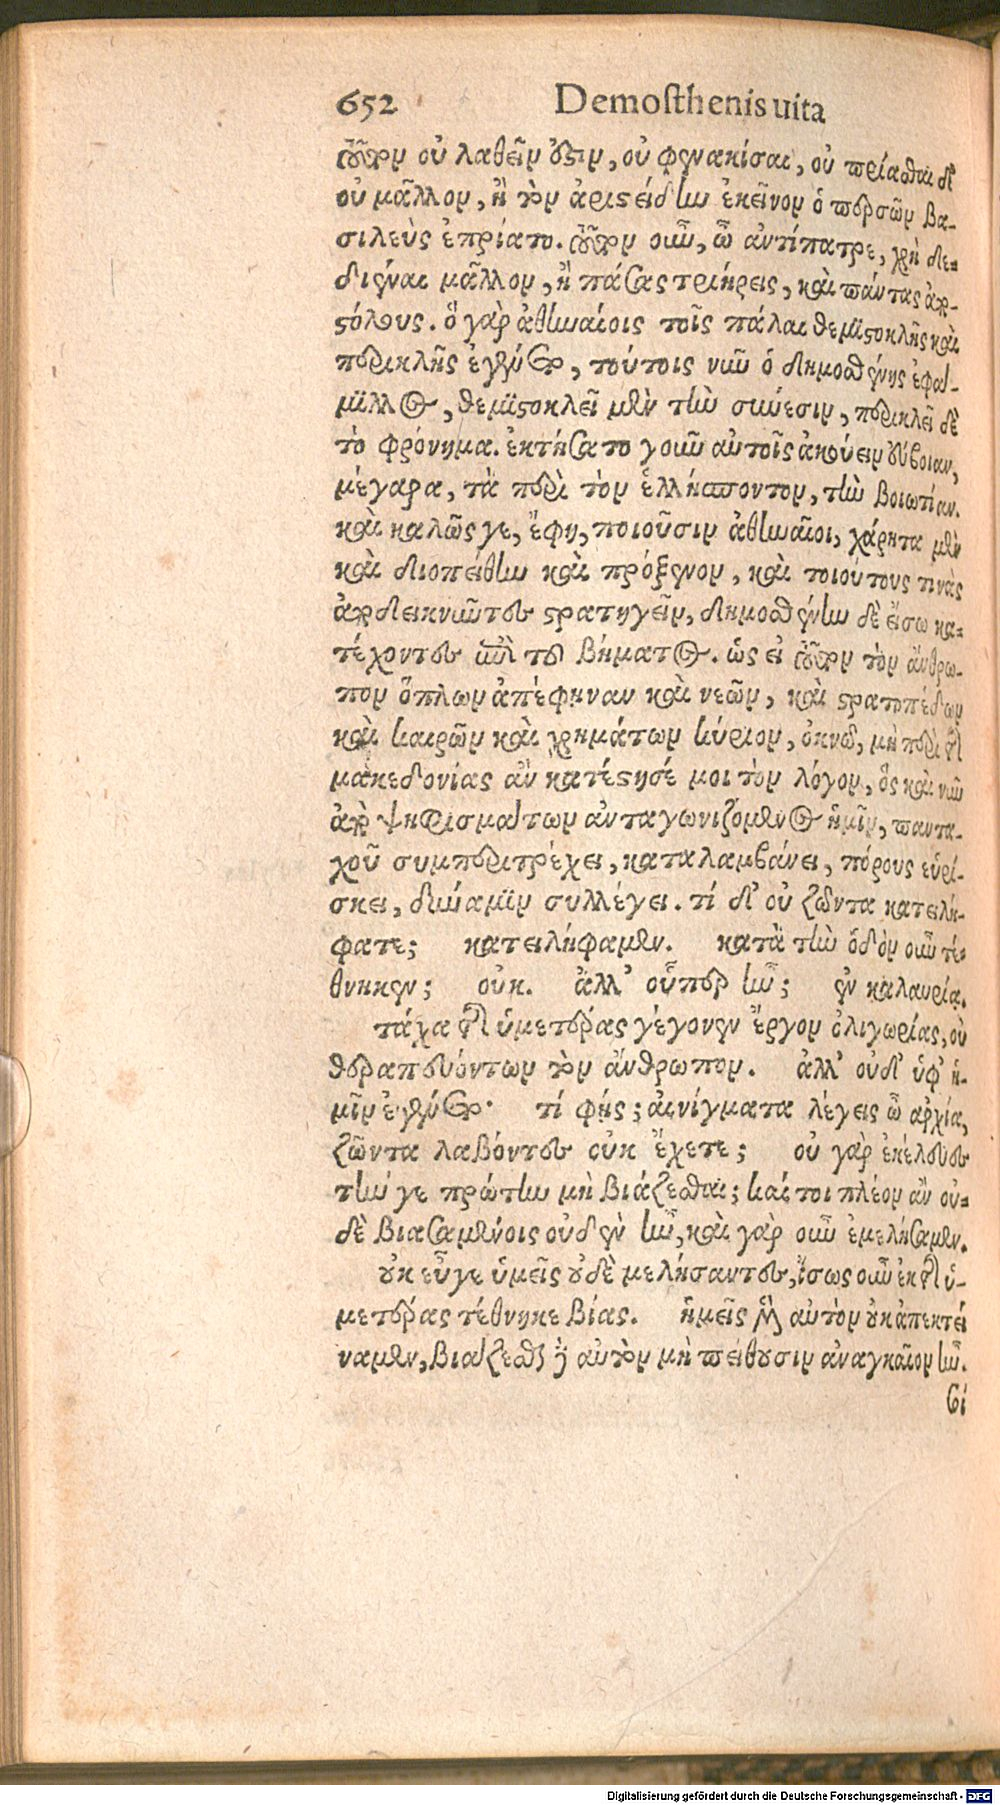 652 Demosthenis uita
τοῦτον οὐ λαθεῖν ἔστιν, οὐ φενακίσαι, οὐ πρίασθαι δι᾽
οὐ μᾶλλον, ἢ τὸν ἀριστείδην ἐκεῖνον ὁ περσῶν βα-
σιλεὺς ἐπρίατο. τοῦτον οὖν, ὦ ἀντίπατρε, χρὴ δε-
διέναι μᾶλλον, ἢ πάσας τριήρεις, καὶ πάντας ἀπο-
στόλους. ὃ γὰρ ἀθηναίοις τοῖς πάλαι θεμιστοκλῆς καὶ
περικλῆς ἐγένετο, τούτοις νῦν ὁ δημοσθένης ἐφά-
μιλλος, θεμιστοκλεῖ μὲν τὴν σύνεσιν, περικλεῖ δὲ
τὸ φρόνημα. ἐκτήσατο γοῦν αὐτοῖς ἀκούειν εὔβοιαν,
μέγαρα, τὰ περὶ τὸν ἑλλήσποντον, τὴν βοιωτίαν.
καὶ καλῶς γε, ἔφη, ποιοῦσιν ἀθηναῖοι, χάρητα μὲν
καὶ διοπείθην καὶ πρόξενον, καὶ τοιούτους τινὰς
ἀποδεικνῦντες στρατηγεῖν, δημοσθένην δὲ εἴσω κα-
τέχοντες ἐπὶ τοῦ βήματος. ὡς εἰ τοῦτον τὸν ἄνθρω-
πον ὅπλων ἀπέφηναν καὶ νεῶν, καὶ στρατοπέδων
καὶ καιρῶν καὶ χρημάτων κύριον, ὀκνῶ, μὴ περὶ τῆς
μακεδονίας ἂν κατέστησέ μοι τὸν λόγον, ὃς καὶ νῦν
ἀπὸ ψηφισμάτων ἀνταγωνιζόμενος ἡμῖν, παντα-
χοῦ συμπεριτρέχει, καταλαμβάνει, πόρους εὑρί-
σκει, δύναμιν συλλέγει. τί δ᾽ οὐ ζῶντα κατειλή-
φατε; κατειλήφαμεν. κατὰ τὴν ὁδὸν οὖν τέ-
θνηκεν; οὐκ. ἀλλ᾽ οὗπερ ἦν; ἐν καλαυρίᾳ.
τάχα τῆς ὑμετέρας γέγονεν ἔργον ὀλιγωρίας, οὐ
θεραπευόντων τὸν ἄνθρωπον. ἀλλ᾽ οὐδ᾽ ὑφ᾽ ἡ-
μῖν ἐγένετο. τί φής; αἰνίγματα λέγεις ὦ ἀρχία,
ζῶντα λαβόντες οὐκ ἔχετε; οὐ γὰρ ἐκέλευες
τήν γε πρώτην μὴ βιάζεσθαι; καί τοι πλέον ἂν οὐ-
δὲ βιασαμένοις οὐδὲν ἦν, καὶ γὰρ οὖν ἐμελήσαμεν.
οὐκ εὖγε ὑμεῖς οὐδὲ μελήσαντες, ἴσως οὖν ἐκ τῆς ὑ-
μετέρας τέθνηκε βίας. ἡμεῖς μὲν αὐτὸν οὐκ ἀπεκτεί
ναμεν, βιάζεσθαι δὲ αὐτὸν μὴ πείθουσιν ἀναγκαῖον ἦν.
εἰ
Digitalisierung gefördert durch die Deutsche Forschungsgemeinschaft - DFG